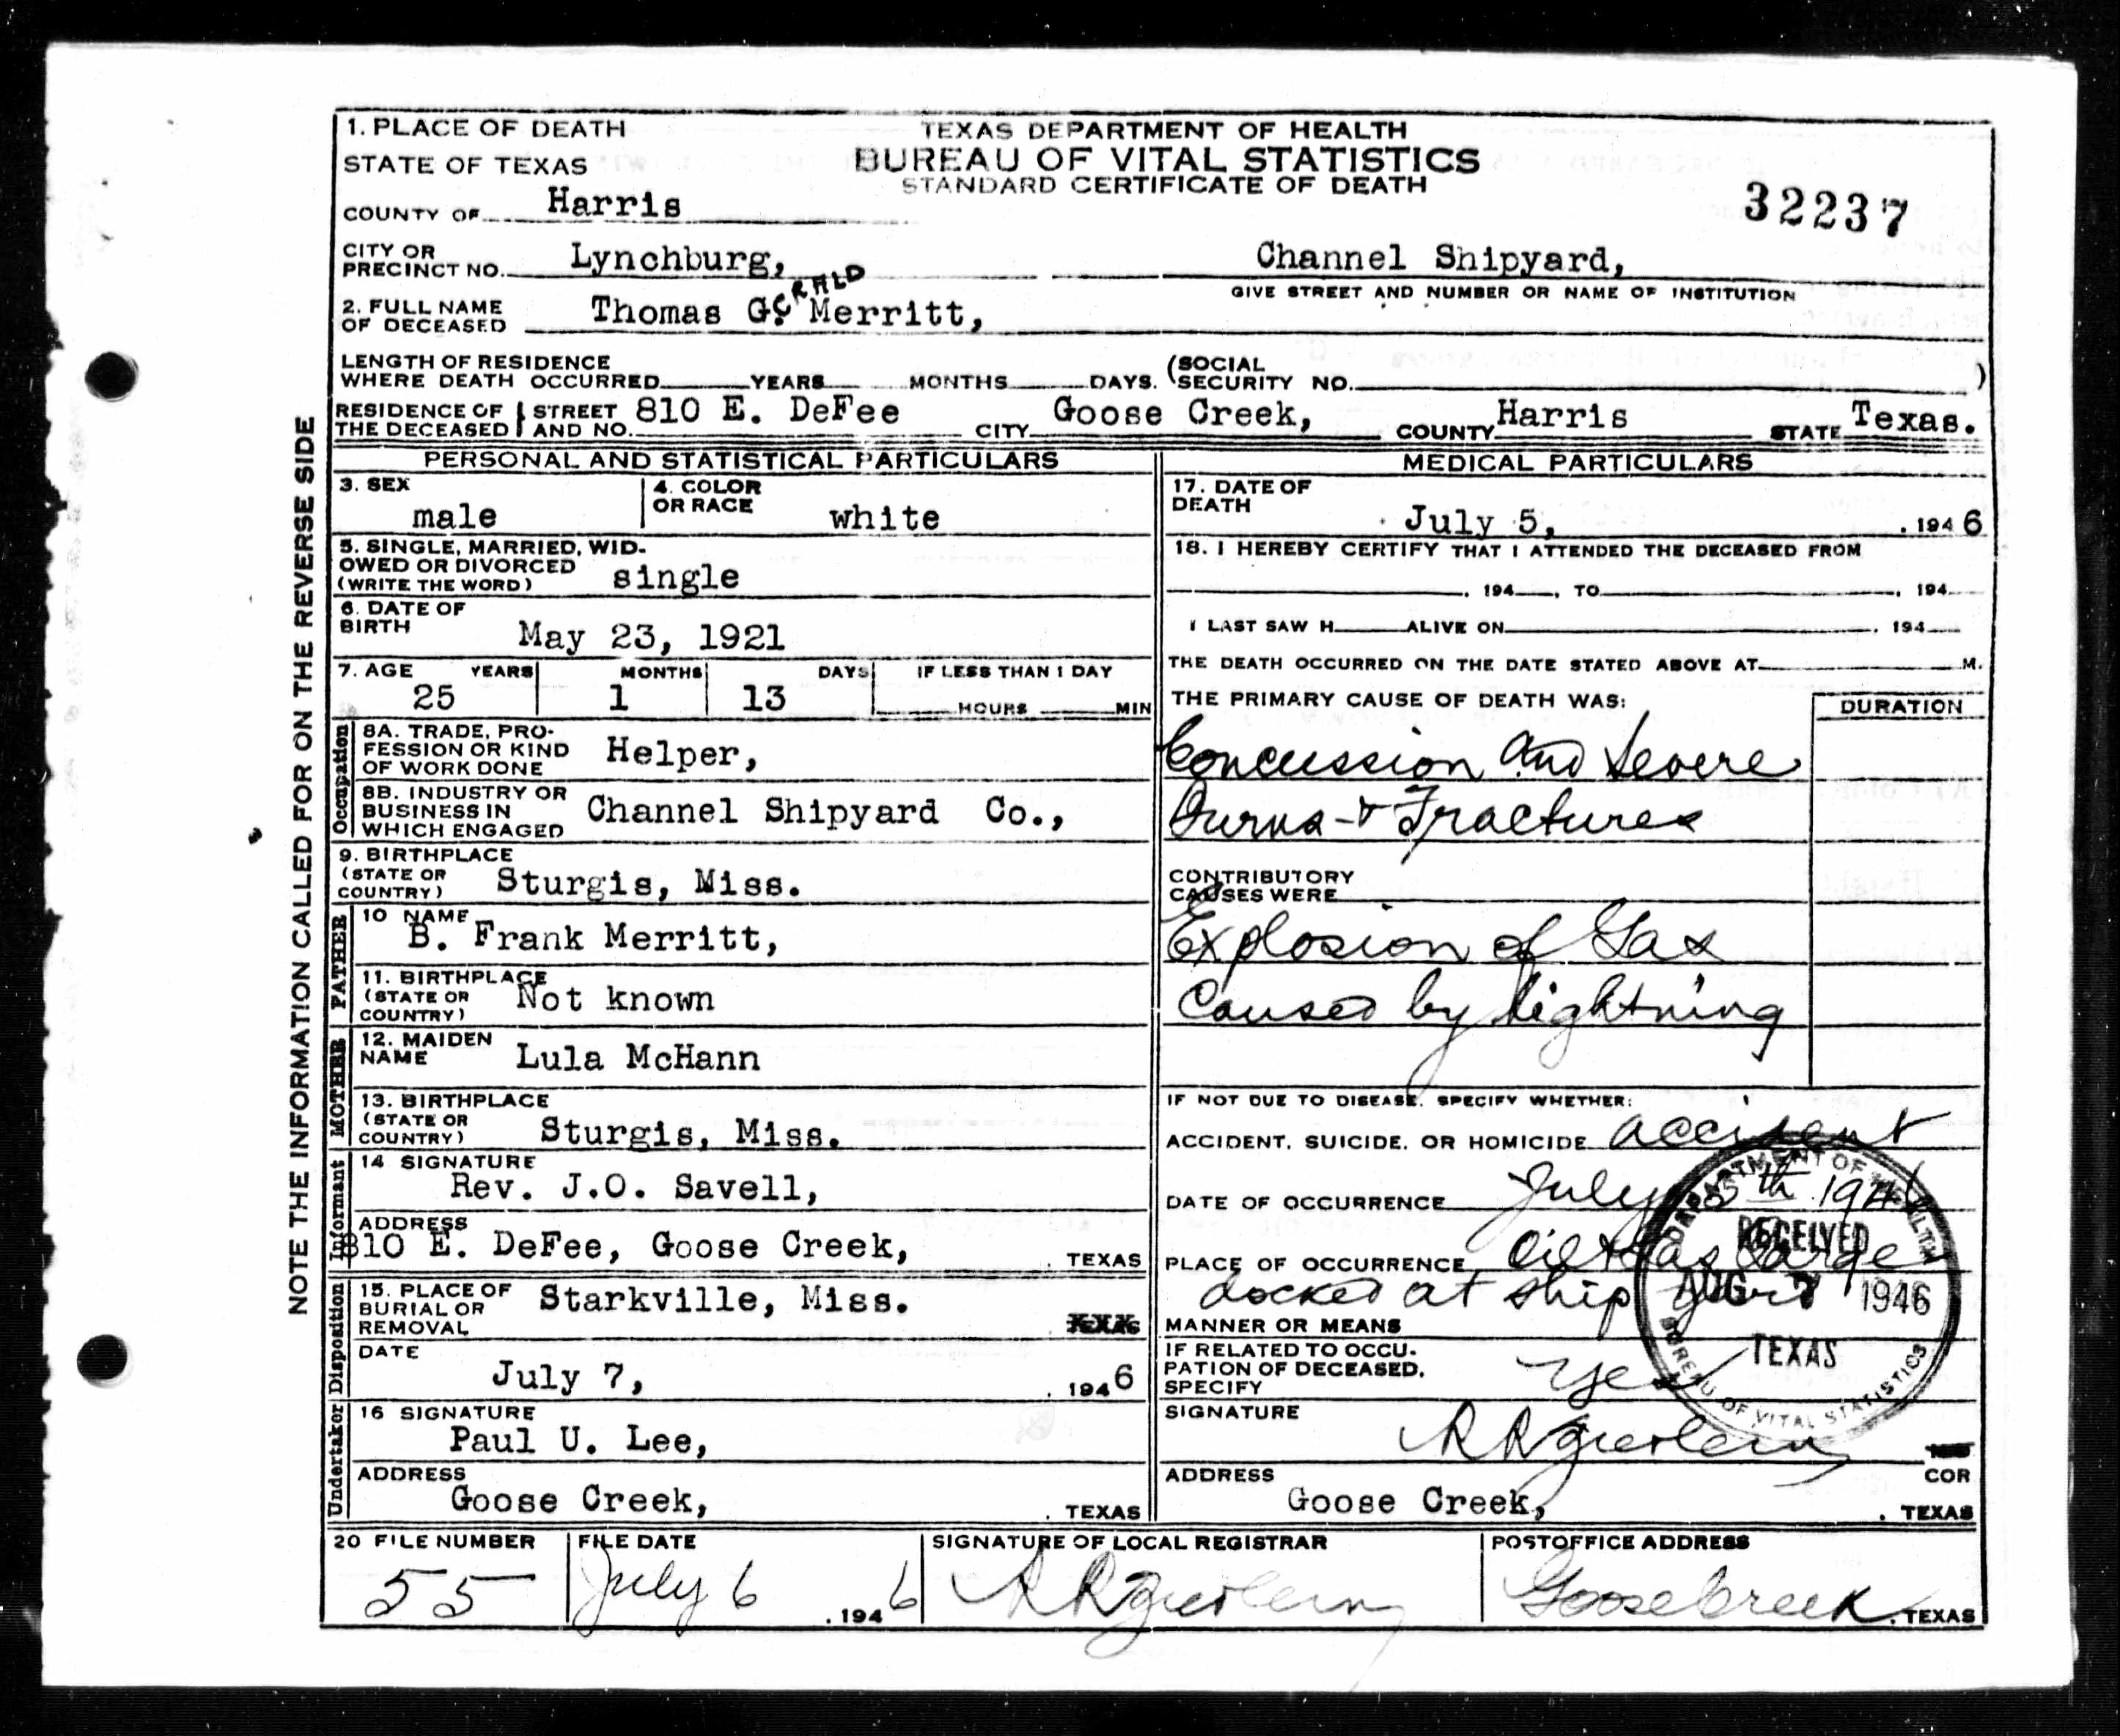 1. PLACE OF DEATH
STATE OF TEXAS
COUNTY OF Harris
TEXAS DEPARTMENT OF HEALTH
BUREAU OF VITAL STATISTICS
STANDARD CERTIFICATE OF DEATH
32237
CITY OR PRECINCT NO. Lynchburg, Channel Shipyard,
GIVE STREET AND NUMBER OR NAME OF INSTITUTION
2. FULL NAME OF DECEASED Thomas GERALD Merritt,
LENGTH OF RESIDENCE
WHERE DEATH OCCURRED YEARS MONTHS DAYS. (SOCIAL SECURITY NO. )
RESIDENCE OF THE DECEASED STREET AND NO. 810 E. DeFee CITY Goose Creek, COUNTY Harris STATE Texas.
NOTE THE INFORMATION CALLED FOR ON THE REVERSE SIDE
PERSONAL AND STATISTICAL PARTICULARS
3. SEX male
4. COLOR OR RACE white
5. SINGLE, MARRIED, WID-
OWED OR DIVORCED
(WRITE THE WORD) single
6. DATE OF BIRTH May 23, 1921
7. AGE YEARS MONTHS DAYS IF LESS THAN 1 DAY
25 1 13 HOURS MIN
Occupation
8A. TRADE, PRO-
FESSION OR KIND
OF WORK DONE Helper,
8B. INDUSTRY OR
BUSINESS IN
WHICH ENGAGED Channel Shipyard Co.,
9. BIRTHPLACE
(STATE OR
COUNTRY) Sturgis, Miss.
FATHER
10 NAME B. Frank Merritt,
11. BIRTHPLACE
(STATE OR
COUNTRY) Not known
MOTHER
12. MAIDEN NAME Lula McHann
13. BIRTHPLACE
(STATE OR
COUNTRY) Sturgis, Miss.
Informant
14 SIGNATURE
Rev. J.O. Savell,
ADDRESS
810 E. DeFee, Goose Creek, TEXAS
Disposition
15. PLACE OF
BURIAL OR
REMOVAL Starkville, Miss.
DATE
July 7, 1946
Undertaker
16 SIGNATURE
Paul U. Lee,
ADDRESS
Goose Creek, TEXAS
MEDICAL PARTICULARS
17. DATE OF DEATH July 5, 1946
18. I HEREBY CERTIFY THAT I ATTENDED THE DECEASED FROM
, 194 , TO , 194
I LAST SAW H ALIVE ON , 194
THE DEATH OCCURRED ON THE DATE STATED ABOVE AT M.
THE PRIMARY CAUSE OF DEATH WAS: DURATION
Concussion and Severe
Burns & Fractures
CONTRIBUTORY
CAUSES WERE
Explosion of Gas
Caused by lightning
IF NOT DUE TO DISEASE, SPECIFY WHETHER:
ACCIDENT, SUICIDE, OR HOMICIDE accident
DATE OF OCCURRENCE July 5th 1946
PLACE OF OCCURRENCE Oil & Gas Barge
docked at Ship Yard
MANNER OR MEANS
IF RELATED TO OCCU-
PATION OF DECEASED,
SPECIFY Yes
SIGNATURE
COR
ADDRESS
Goose Creek, TEXAS
DEPARTMENT OF HEALTH
RECEIVED
AUG 7 1946
TEXAS
BUREAU OF VITAL STATISTICS
20 FILE NUMBER FILE DATE SIGNATURE OF LOCAL REGISTRAR POSTOFFICE ADDRESS
55 July 6 1946 Goose Creek, TEXAS